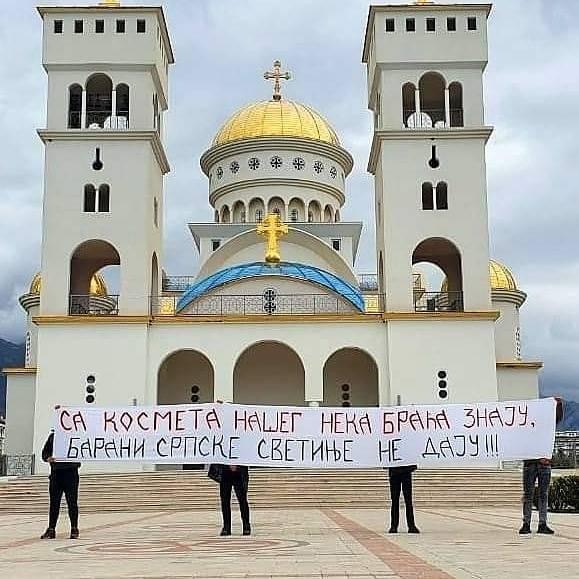 СА КОСМЕТА НАШЕГ НЕКА БРАЋА ЗНАЈУ,
БАРАНИ СРПСКЕ СВЕТИЊЕ НЕ ДАЈУ!!!